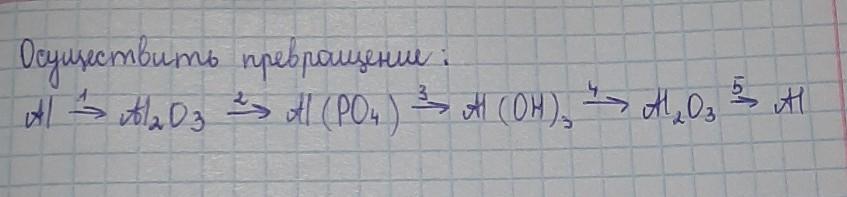 Осуществить превращение:
Al 1→ Al₂O₃ 2→ Al(PO₄) 3→ Al(OH)₃ 4→ Al₂O₃ 5→ Al